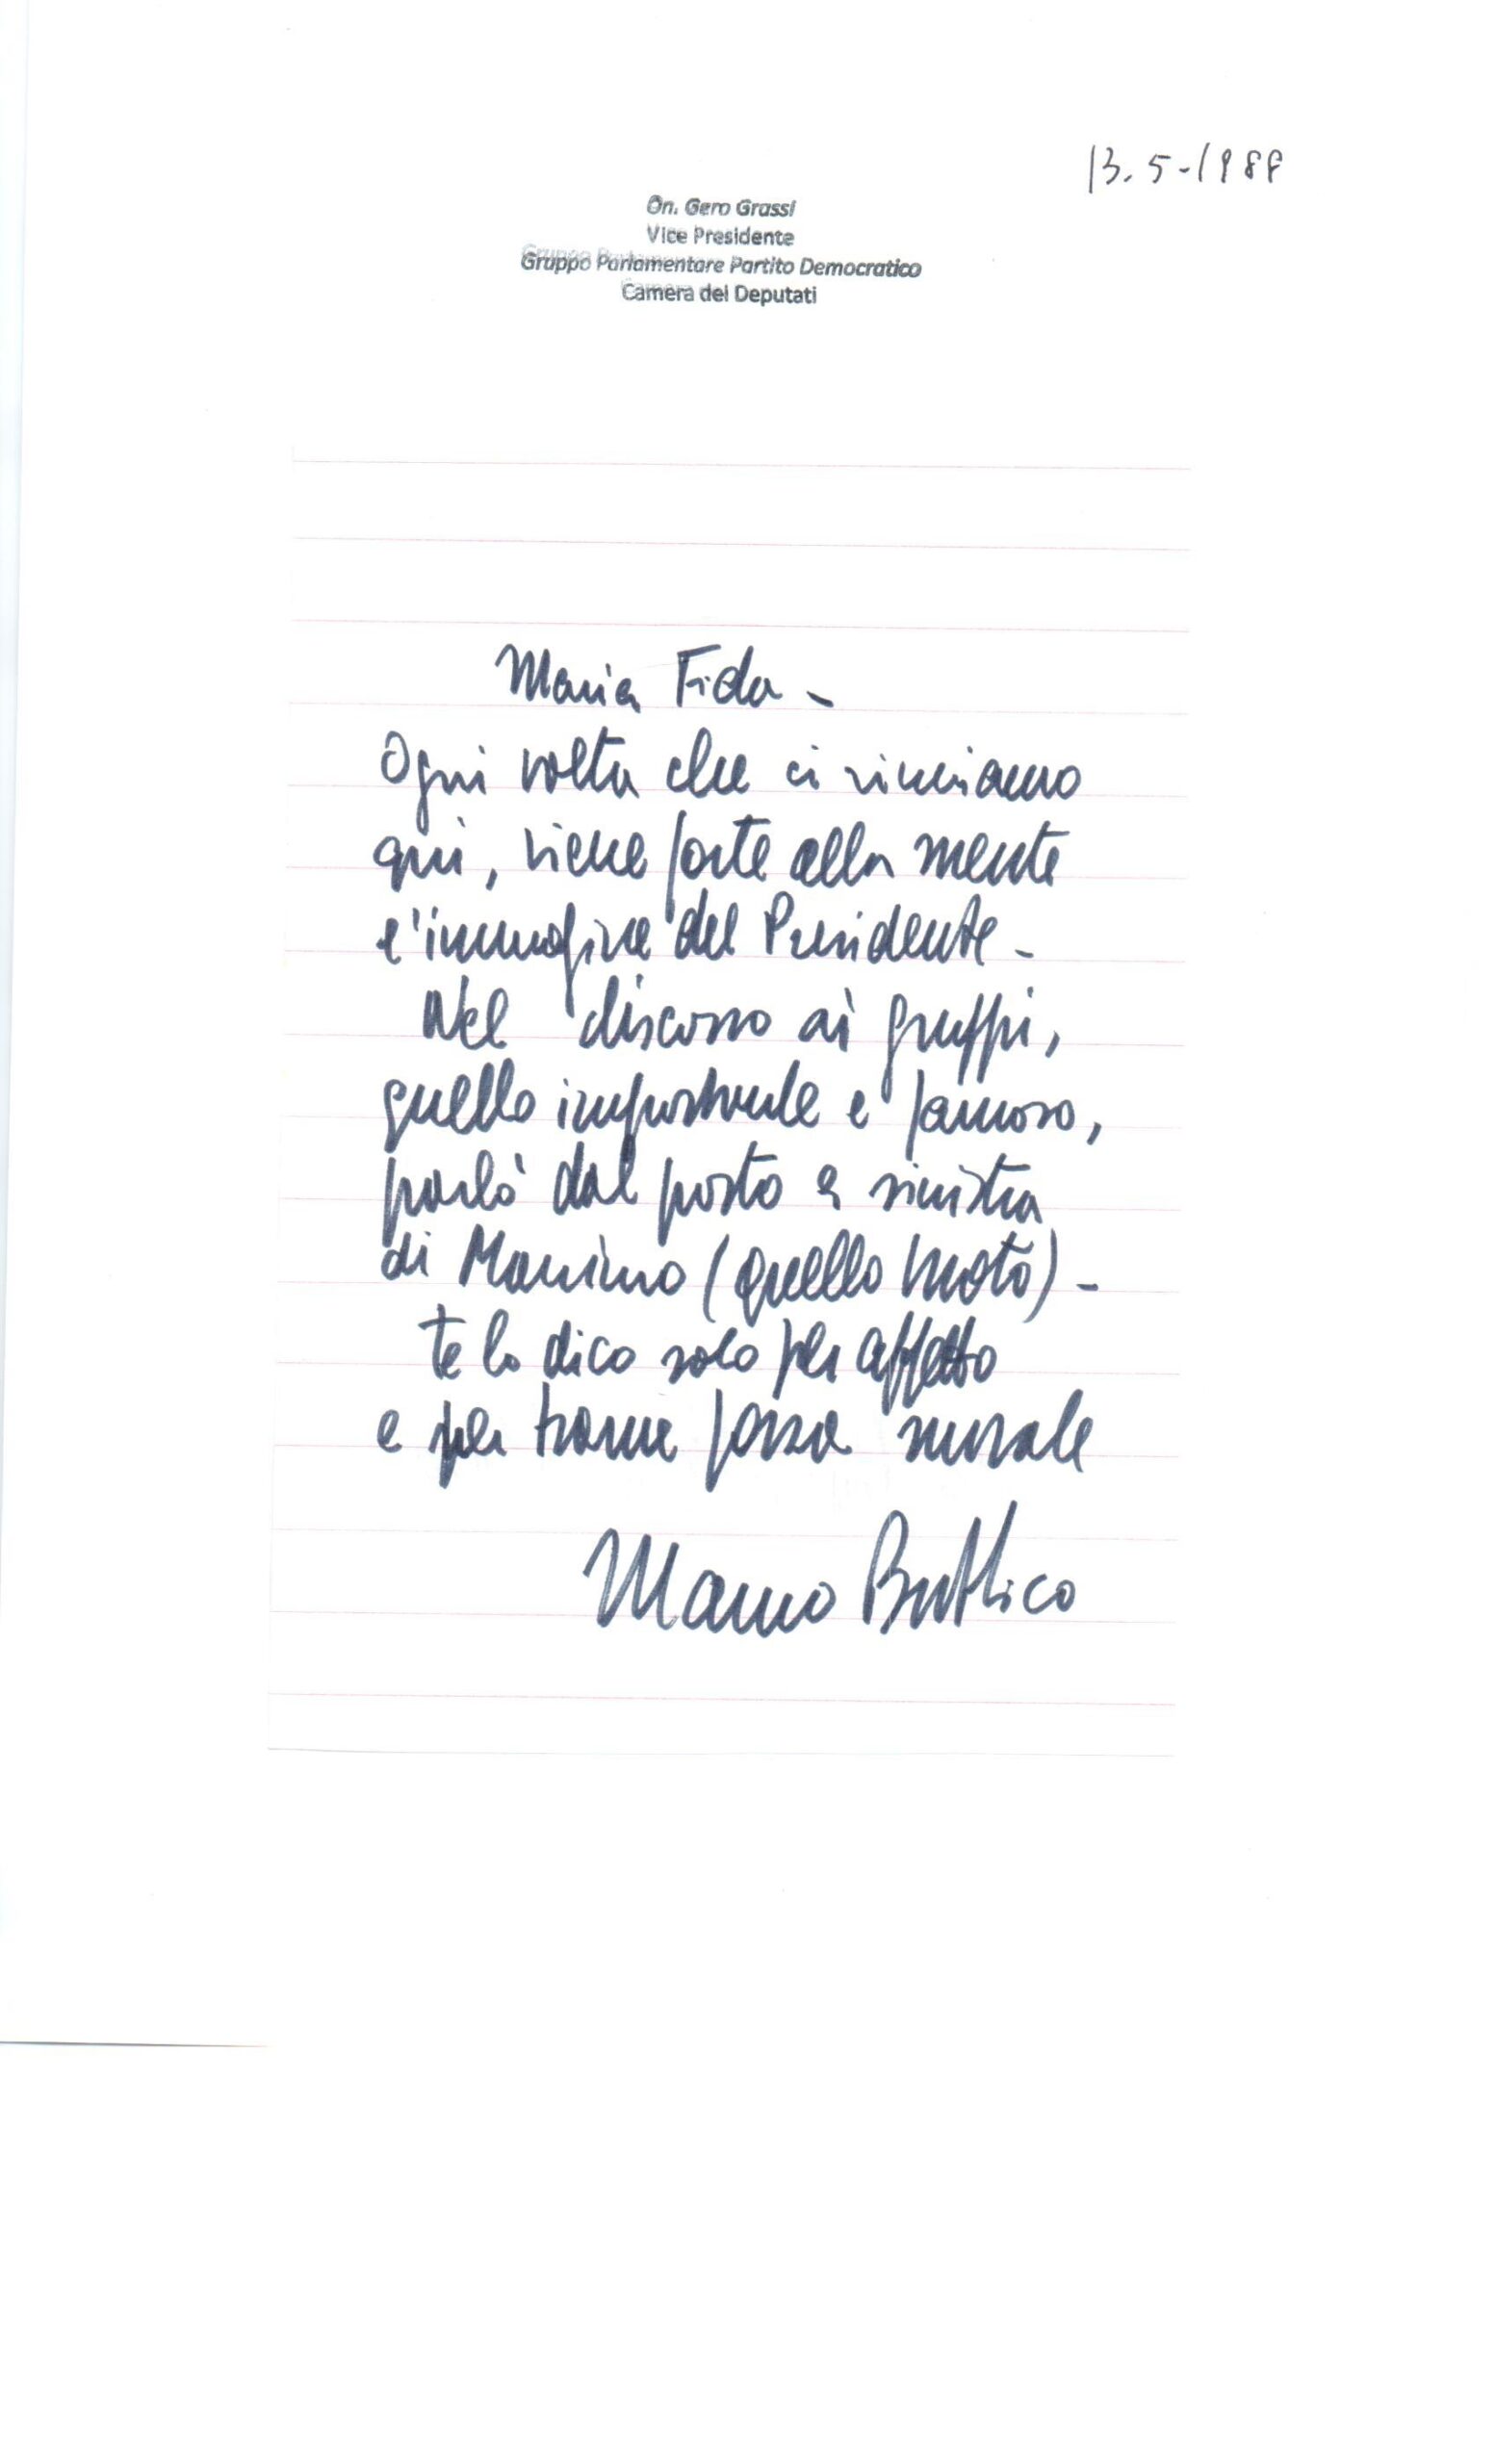 13.5-1988
On. Gero Grassi
Vice Presidente
Gruppo Parlamentare Partito Democratico
Camera dei Deputati
Maria Fida -
Ogni volta che ci riuniamo
qui, viene forte alla mente
l'immagine del Presidente -
Nel discorso ai gruppi,
quello importante e famoso,
parlò dal posto a sinistra
di Massimo (quello vuoto) -
te lo dico solo per affetto
e per trarne forza morale
Mauro